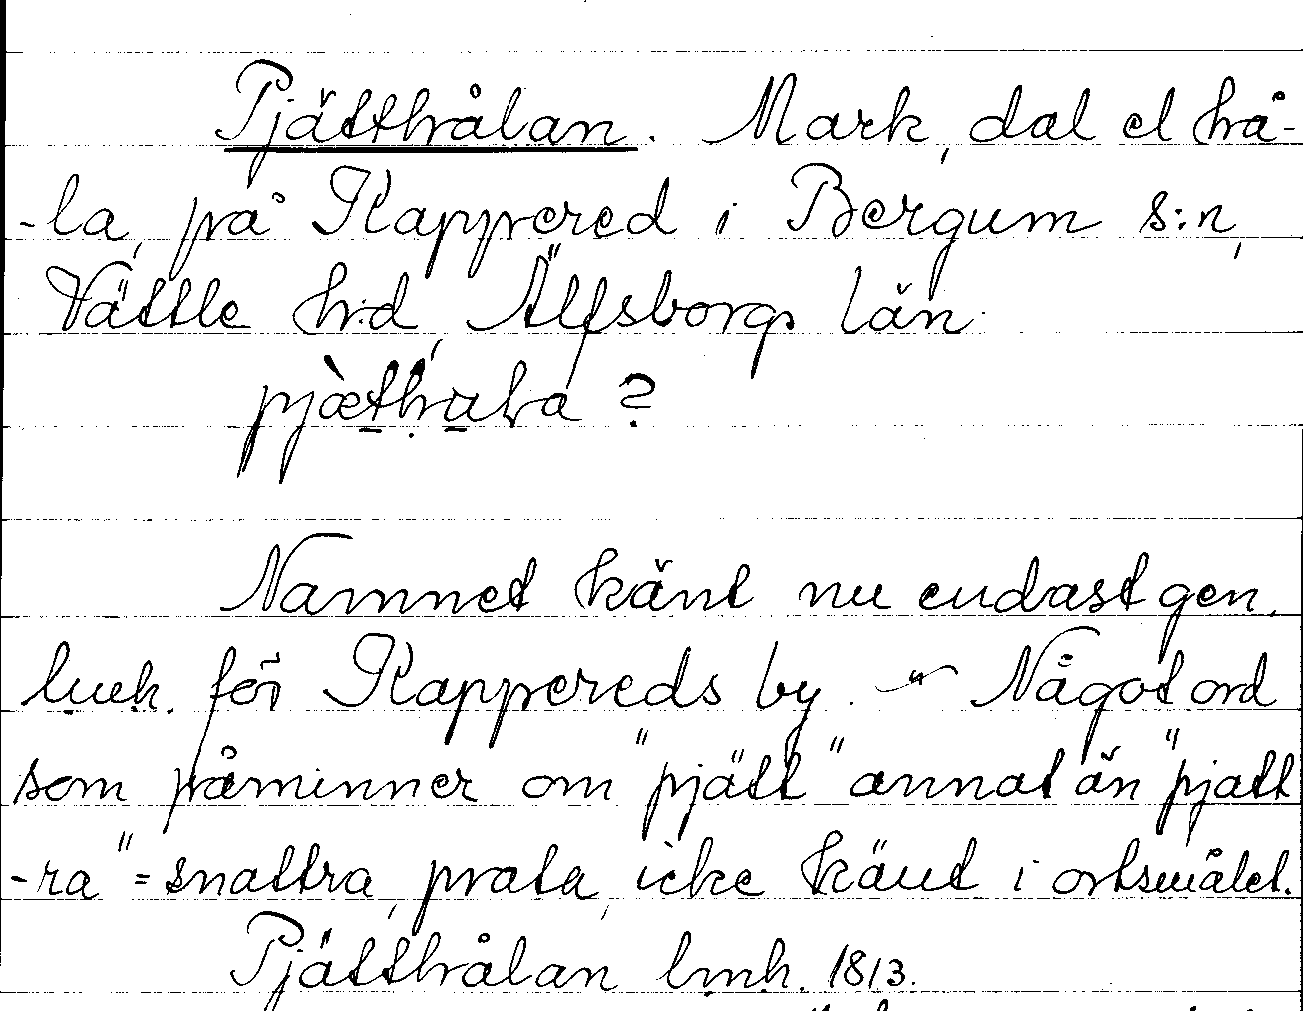 Pjätthålan. Mark, dal el hå-
-la, på Rappered i Bergum s:n,
Vättle h:d, Älfsborgs län.
pjæthala ?
Namnet känt nu endast gen.
lmh. för Rappereds by. - Något ord
som påminner om "pjätt" annat än "pjatt
-ra" = snattra, prata, icke känt i ortsmålet.
Pjätthålan lmh. 1813.